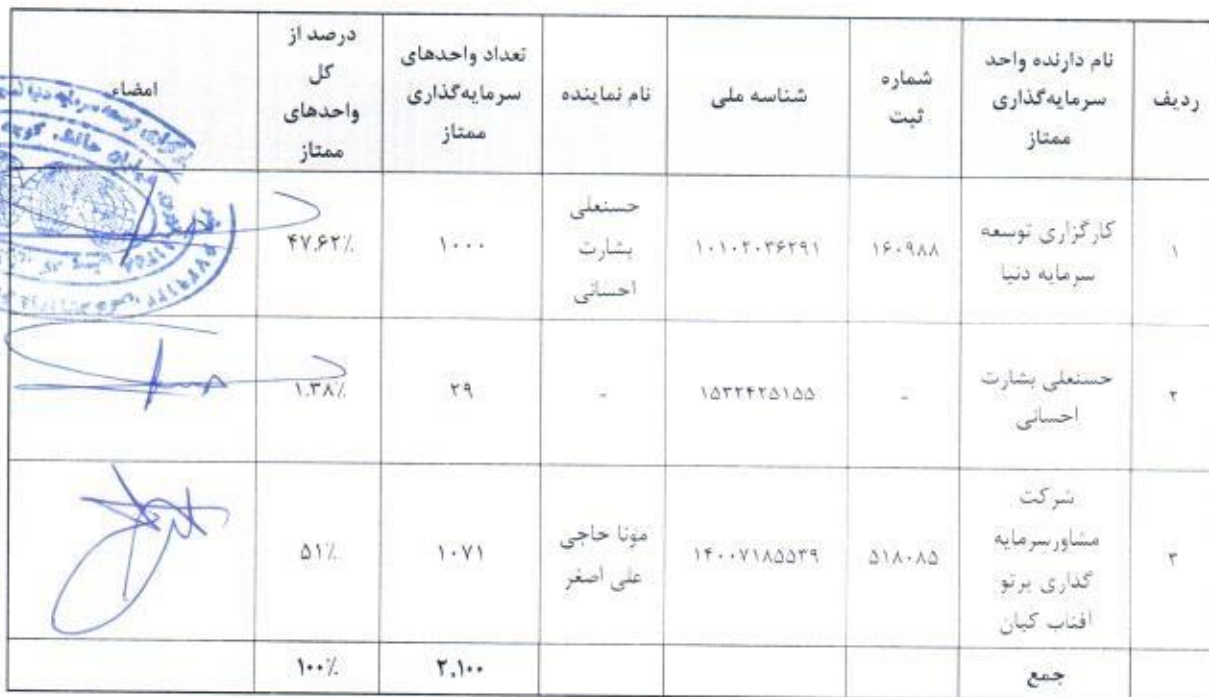 ردیف
نام دارنده واحد
سرمایه‌گذاری
ممتاز
شماره
ثبت
شناسه ملی
نام نماینده
تعداد واحدهای
سرمایه‌گذاری
ممتاز
درصد از
کل
واحدهای
ممتاز
امضاء
۱
کارگزاری توسعه
سرمایه دنیا
۱۶۰۹۸۸
۱۰۱۰۲۰۳۶۲۹۱
حسنعلی
بشارت
احسانی
۱۰۰۰
۴۷.۶۲٪
۲
حسنعلی بشارت
احسانی
-
۱۵۳۲۴۲۵۱۵۵
-
۲۹
۱.۳۸٪
۳
شرکت
مشاورسرمایه
گذاری پرتو
افتاب کیان
۵۱۸۰۸۵
۱۴۰۰۷۱۸۵۵۳۹
مونا حاجی
علی اصغر
۱۰۷۱
۵۱٪
جمع
۲,۱۰۰
۱۰۰٪